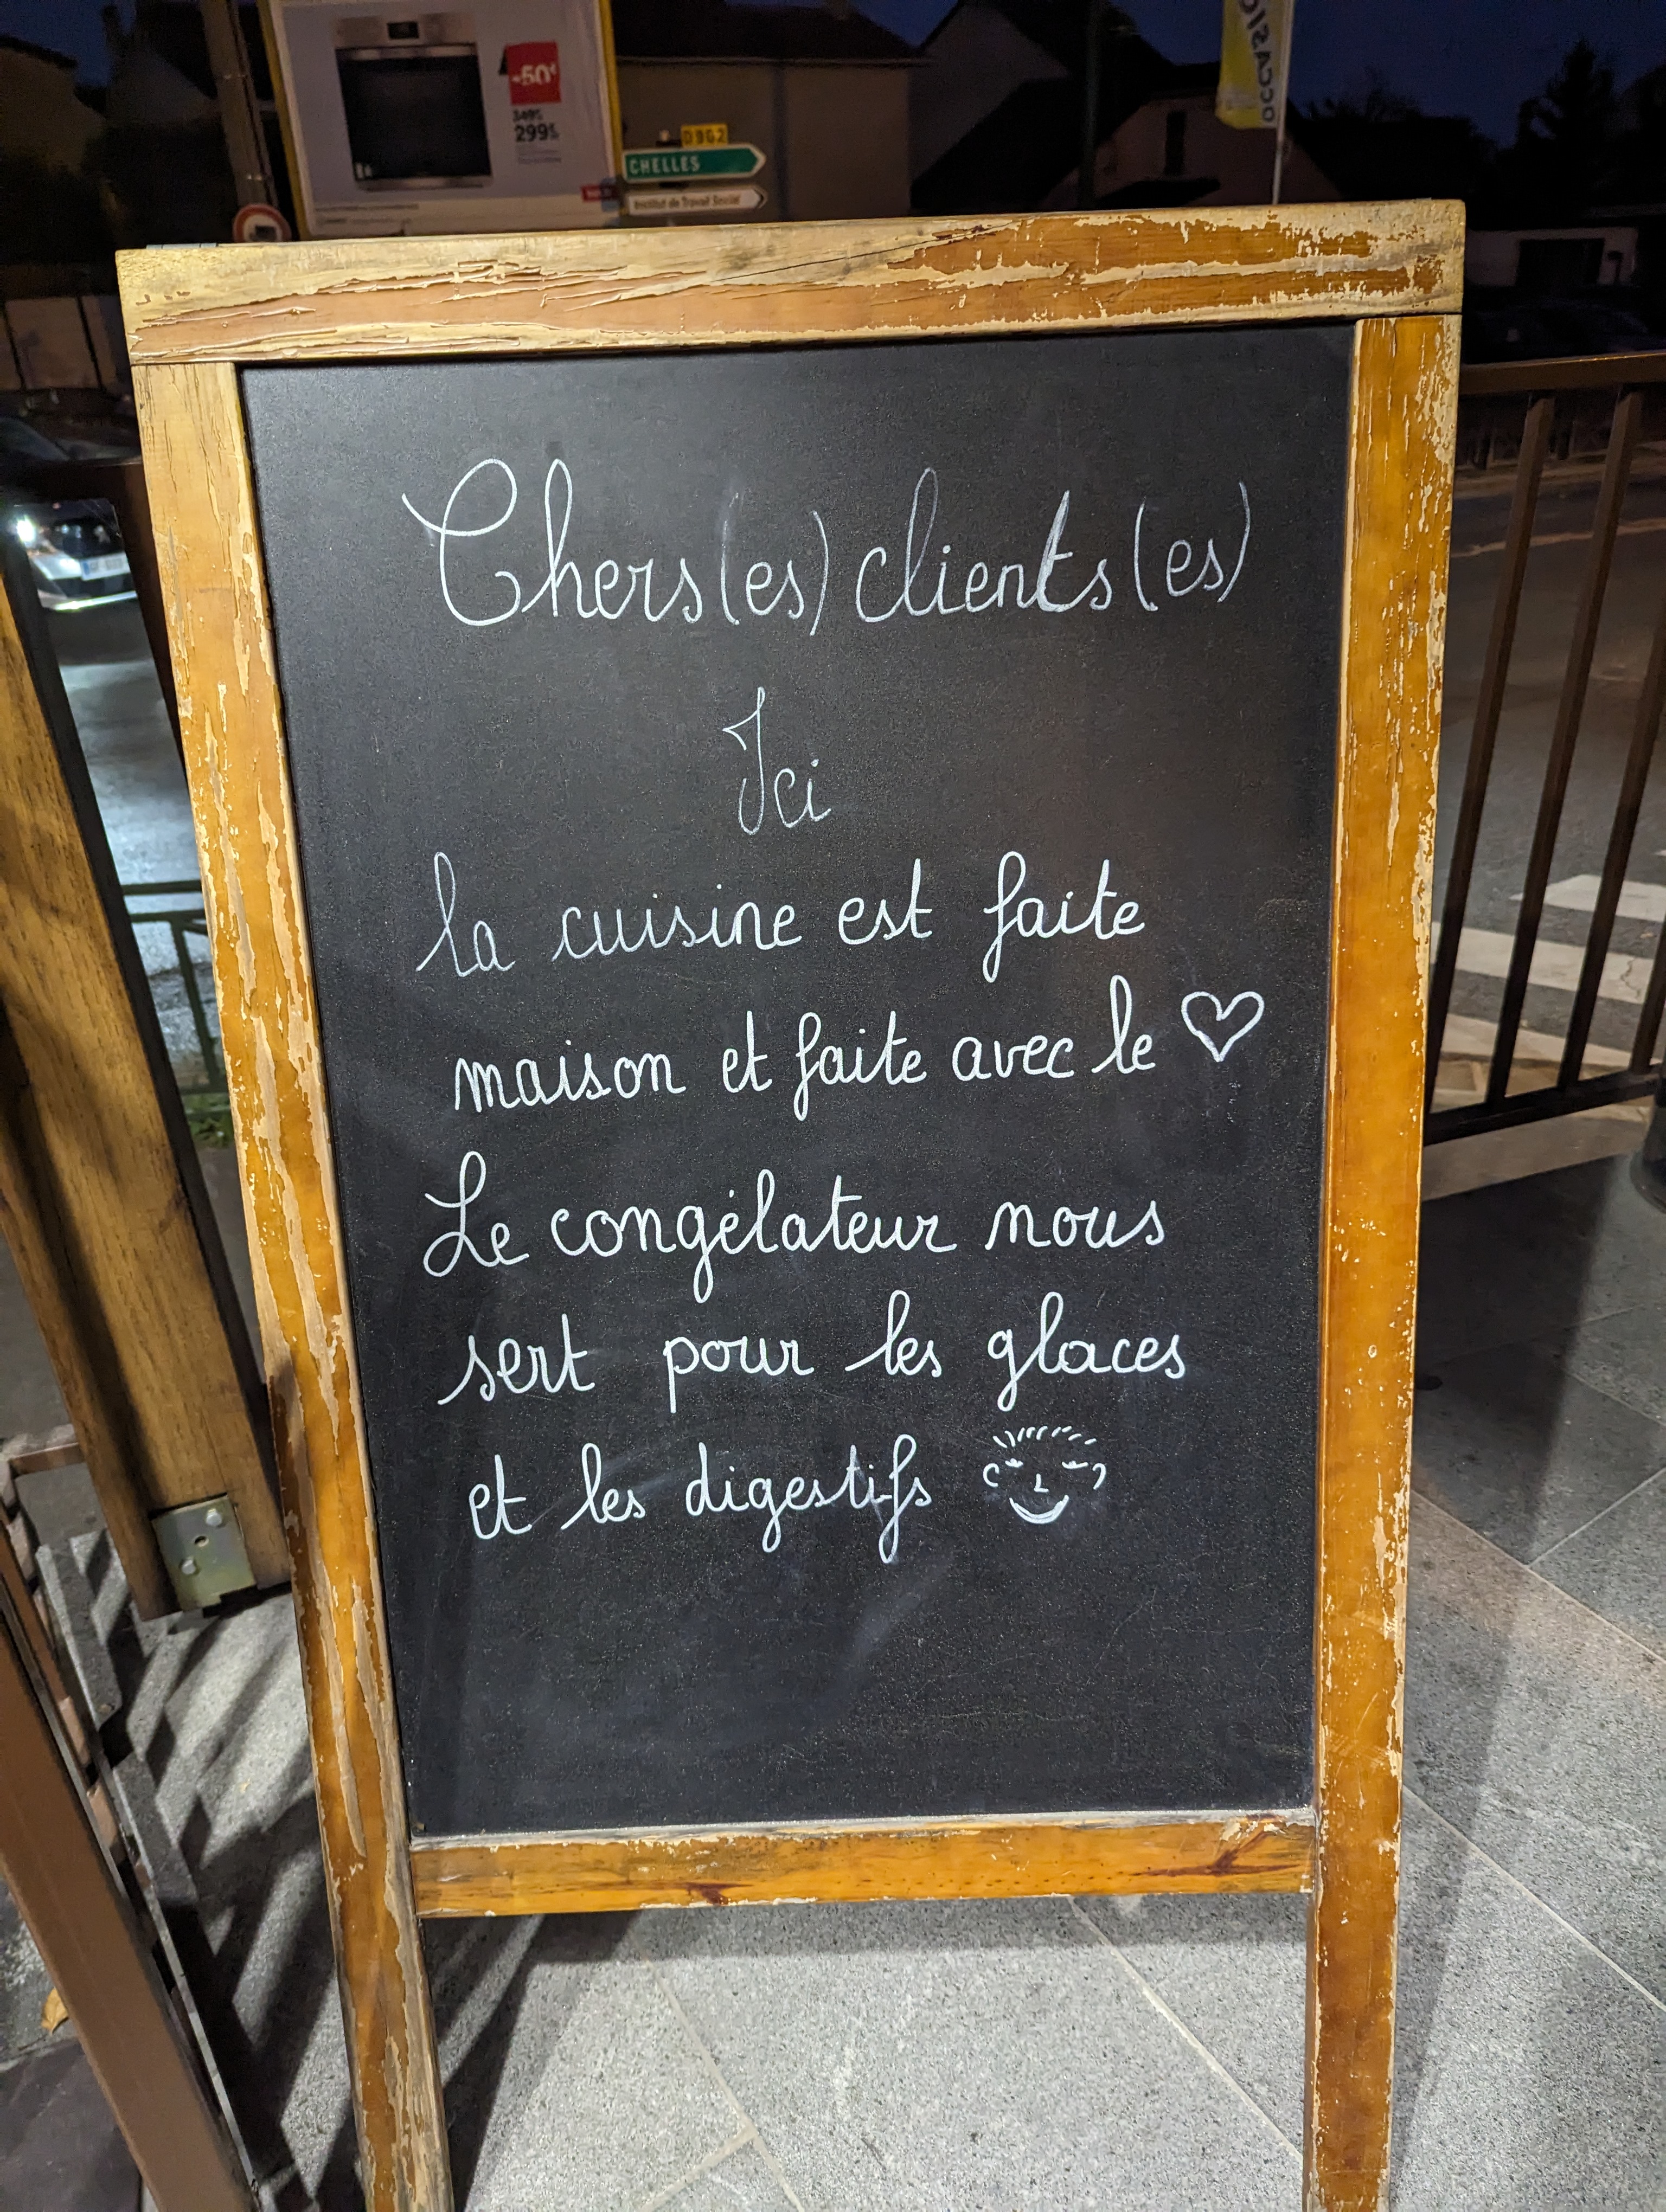 -50€
349€
299€
D902
CHELLES
Institut de Travail Social
OCCASIO
Chers(es) clients(es)
Ici
la cuisine est faite
maison et faite avec le ♡
Le congélateur nous
sert pour les glaces
et les digestifs